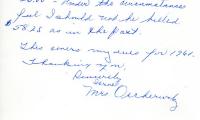 20.00 - Under the circumstances
feel I should not be billed
$58.25 as in the past.
This covers my dues for 1961.
Thanking you,
Sincerely,
Mrs